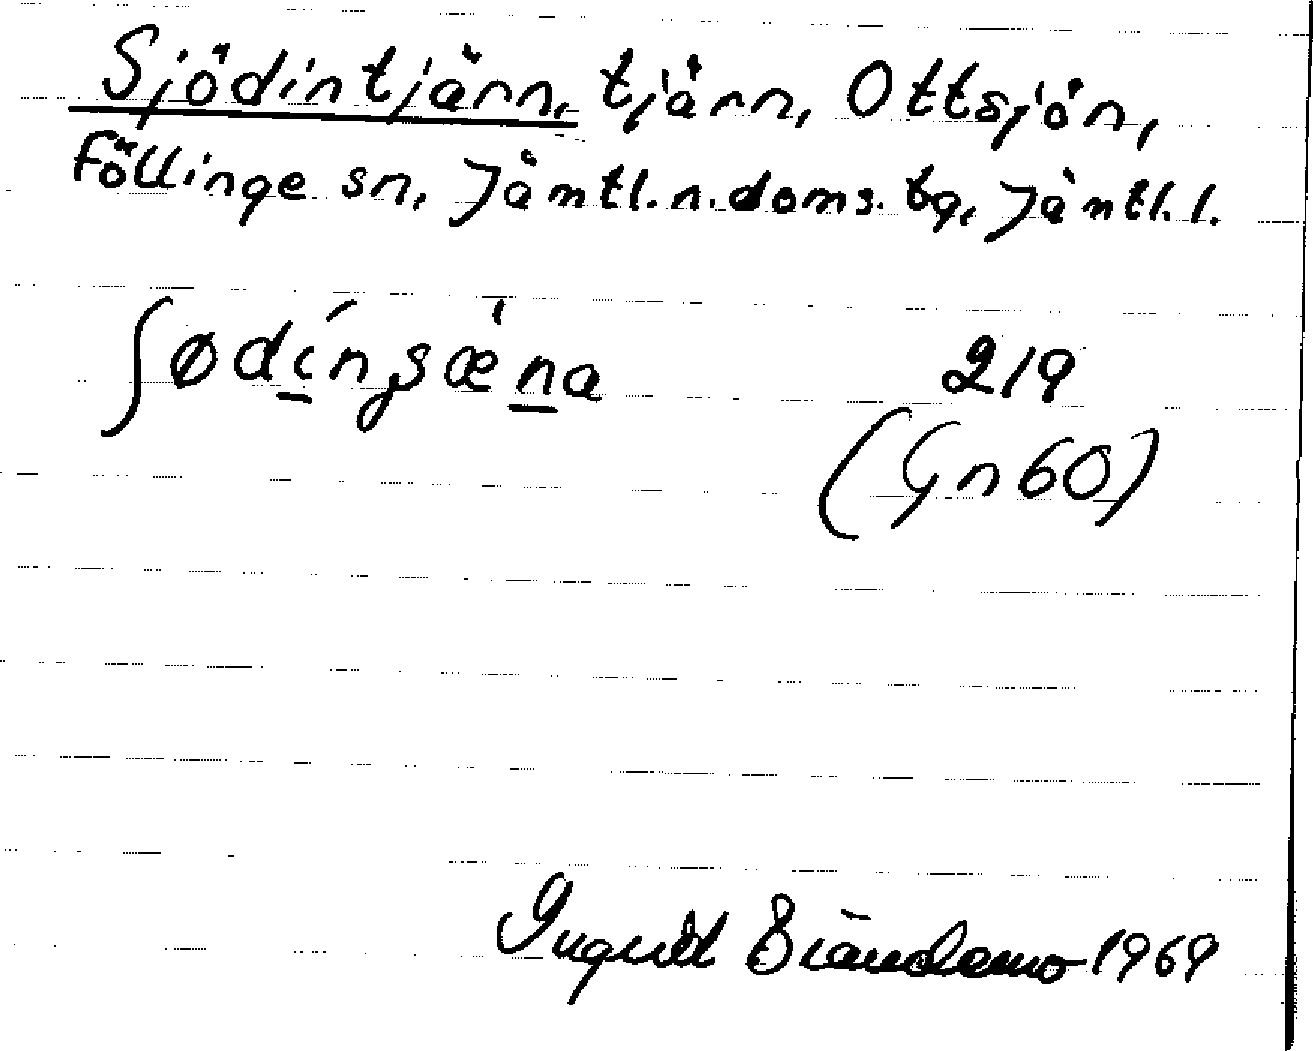 Sjödintjärn, tjärn, Ottsjön,
Föllinge sn, Jämtl.n.doms.tg, Jämtl.l.
ʃødínʂæ̀na 219
(Gn60)
1969